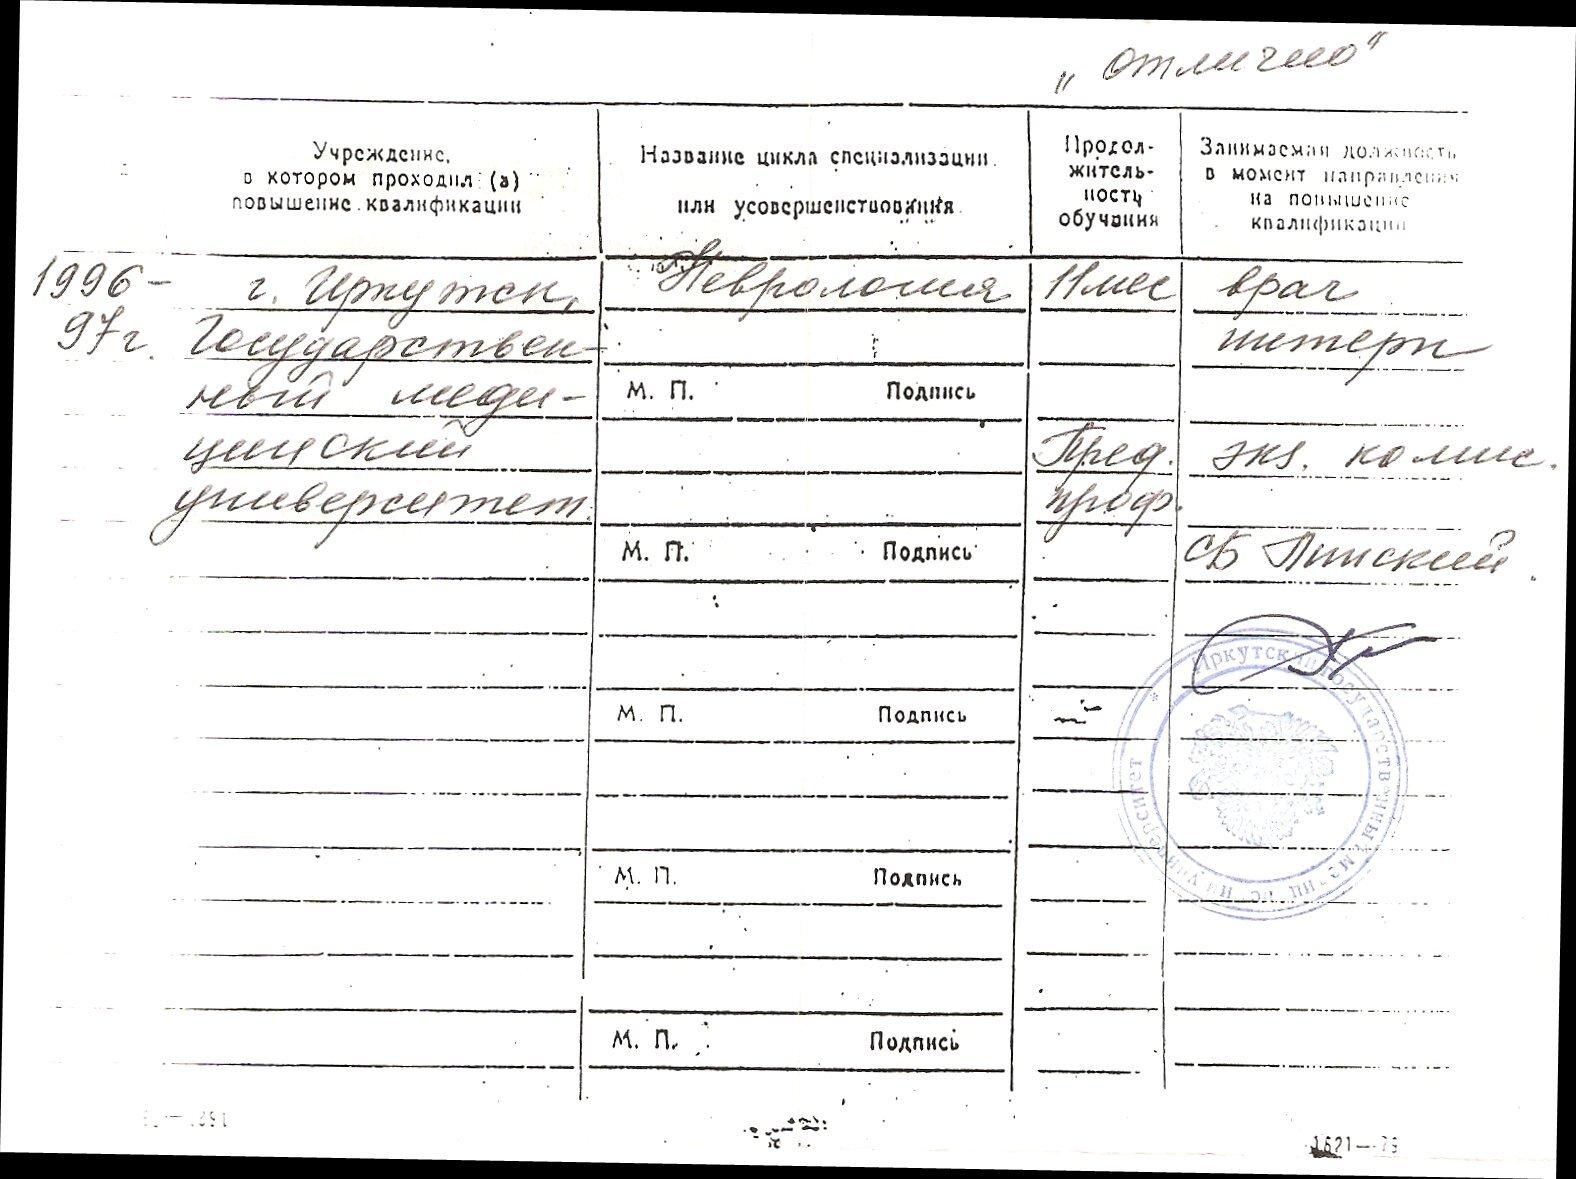 „отлично“
Учреждение,
в котором проходил (а)
повышение квалификации
Название цикла специализации
или усовершенствования
Продол-
житель-
ность
обучения
Занимаемая должность
в момент направления
на повышение
квалификации
1996- г. Иркутск, Неврология 11 мес врач
97г. Государствен- интерн
ный меди-
М. П. Подпись
цинский Пред. экз. комис.
университет. проф.
М. П. Подпись СБ Пинский.
М. П. Подпись
Иркутский государственный медицинский университет
М. П. Подпись
М. П. Подпись
1621—79